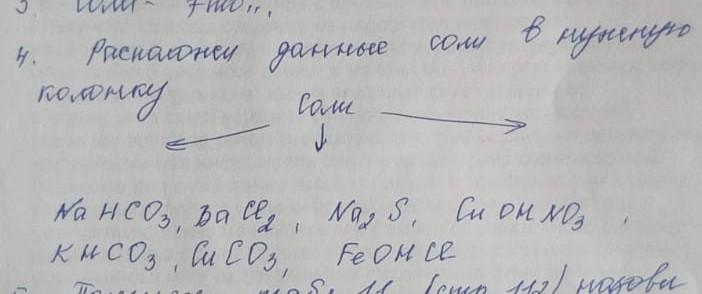 3. Соли - это..
4. Расположи данные соли в нужную
колонку
Соли
NaHCO3, BaCl2, Na2S, CuOHNO3,
KHCO3, CuCO3, FeOHCl
(стр 112) назови